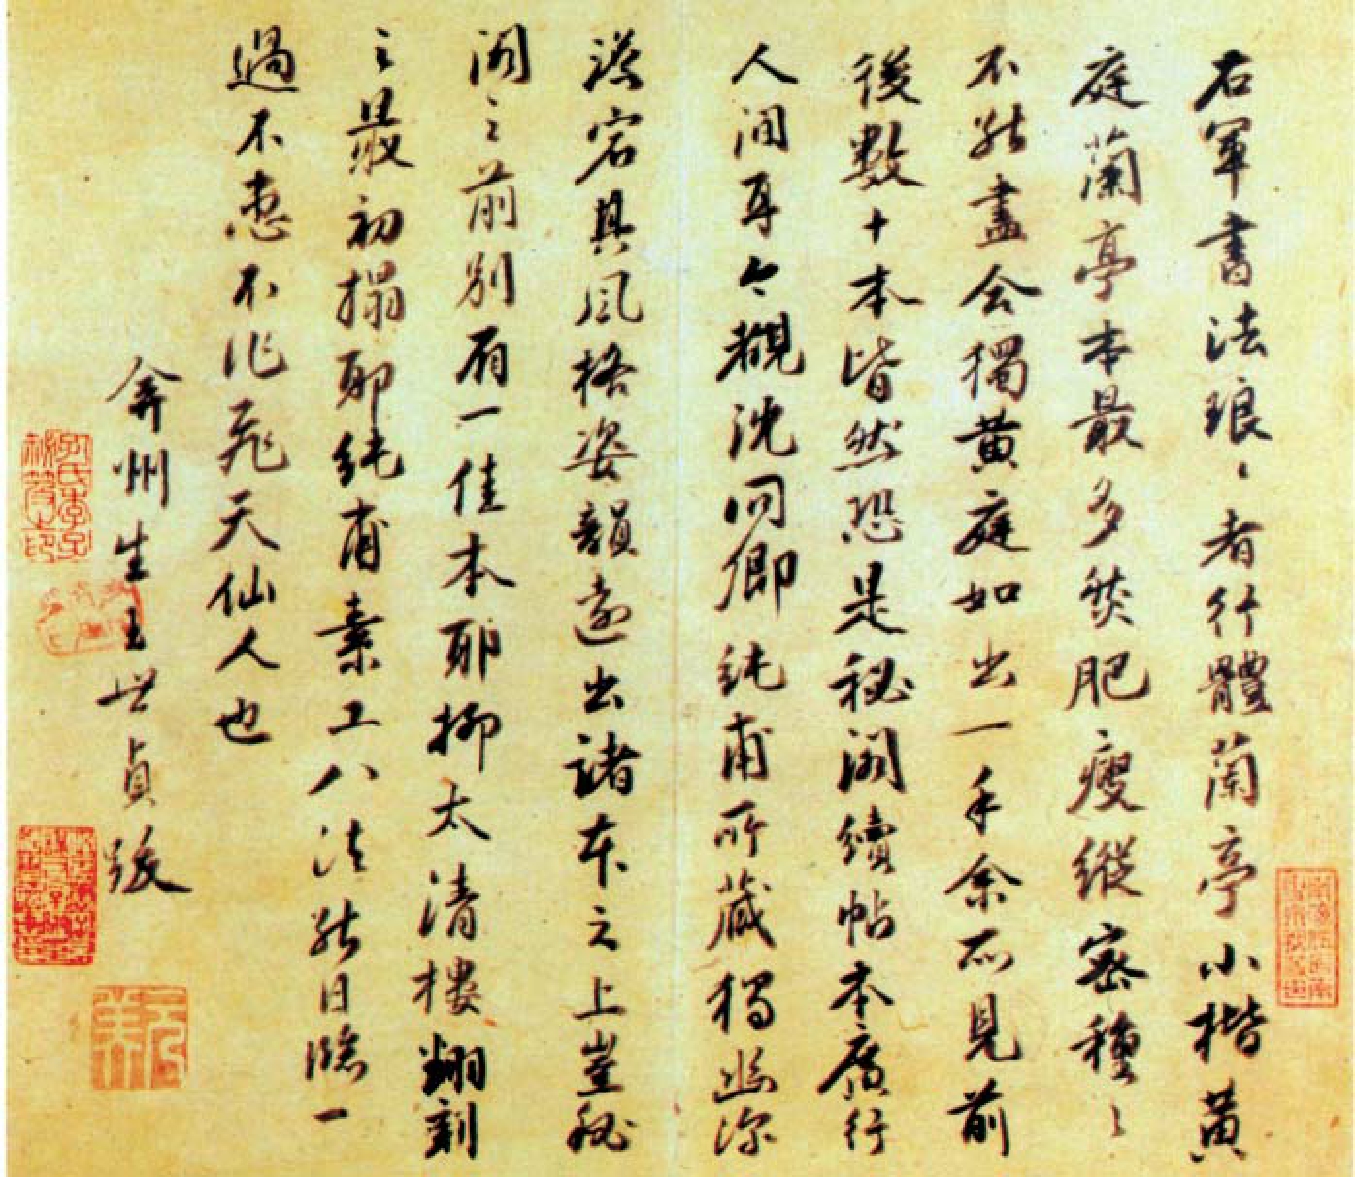 右軍書法琅〻者行體蘭亭小楷黃
庭蘭亭本最多然肥瘦縱密種〻
不能盡會獨黃庭如出一手余所見前
後數十本皆然恐是秘閣續帖本廣行
人間耳今觀沈冏卿純甫所藏獨幽深
淡宕具風格姿韻遠出諸本之上豈秘
閣之前別有一佳本耶抑太清樓翻刻
之最初搨耶純甫素工八法能日臨一
過不患不作飛天仙人也
弇州生王世貞跋